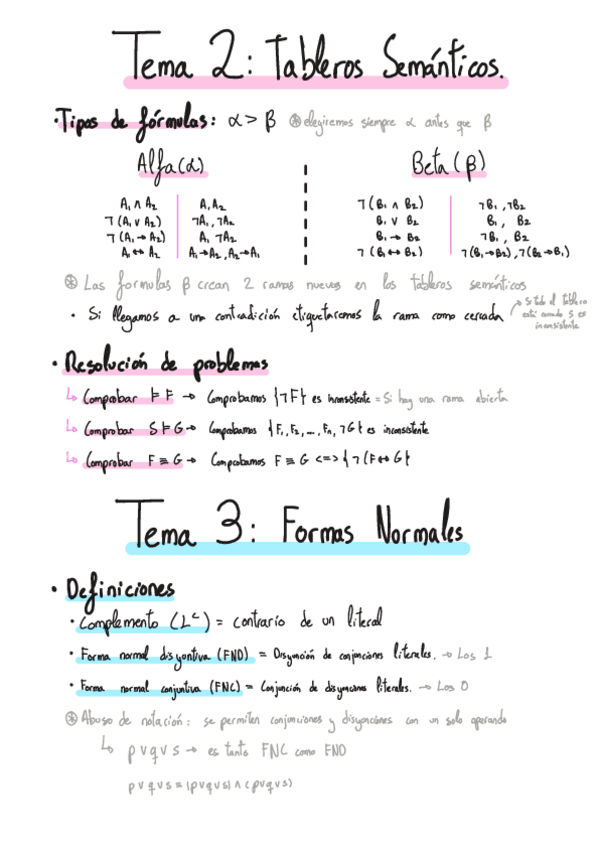 Tema 2: Tableros Semánticos.
· Tipos de fórmulas: α > β ⊛ elegiremos siempre α antes que β
Alfa (α)
A₁ ∧ A₂ | A₁, A₂
¬(A₁ ∨ A₂) | ¬A₁, ¬A₂
¬(A₁ → A₂) | A₁, ¬A₂
A₁ ↔ A₂ | A₁→A₂, A₂→A₁
Beta (β)
¬(B₁ ∧ B₂) | ¬B₁, ¬B₂
B₁ ∨ B₂ | B₁, B₂
B₁ → B₂ | ¬B₁, B₂
¬(B₁ ↔ B₂) | ¬(B₁→B₂), ¬(B₂→B₁)
⊛ Las formulas β crean 2 ramas nuevas en los tableros semánticos
· Si llegamos a una contradición etiquetaremos la rama como cerrada
Si todo el tablero
está cerrado S es
inconsistente
· Resolución de problemas
↳ Comprobar ⊨ F → Comprobamos {¬F} es inconsistente = Si hay una rama abierta
↳ Comprobar S ⊨ G → Comprobamos {F₁, F₂, ..., Fₙ, ¬G} es inconsistente
↳ Comprobar F ≡ G → Comprobamos F ≡ G <=> {¬(F↔G}
Tema 3: Formas Normales
· Definiciones
· Complemento (Lᶜ) = contrario de un literal
· Forma normal disyontiva (FND) = Disyunción de conjunciones literales. → Los 1
· Forma normal conjuntiva (FNC) = Conjunción de disyunciones literales. → Los 0
⊛ Abuso de notación: se permiten conjunciones y disyunciones con un solo operando
↳ p ∨ q ∨ s → es tanto FNC como FND
p ∨ q ∨ s ≡ (p ∨ q ∨ s) ∧ (p ∨ q ∨ s)